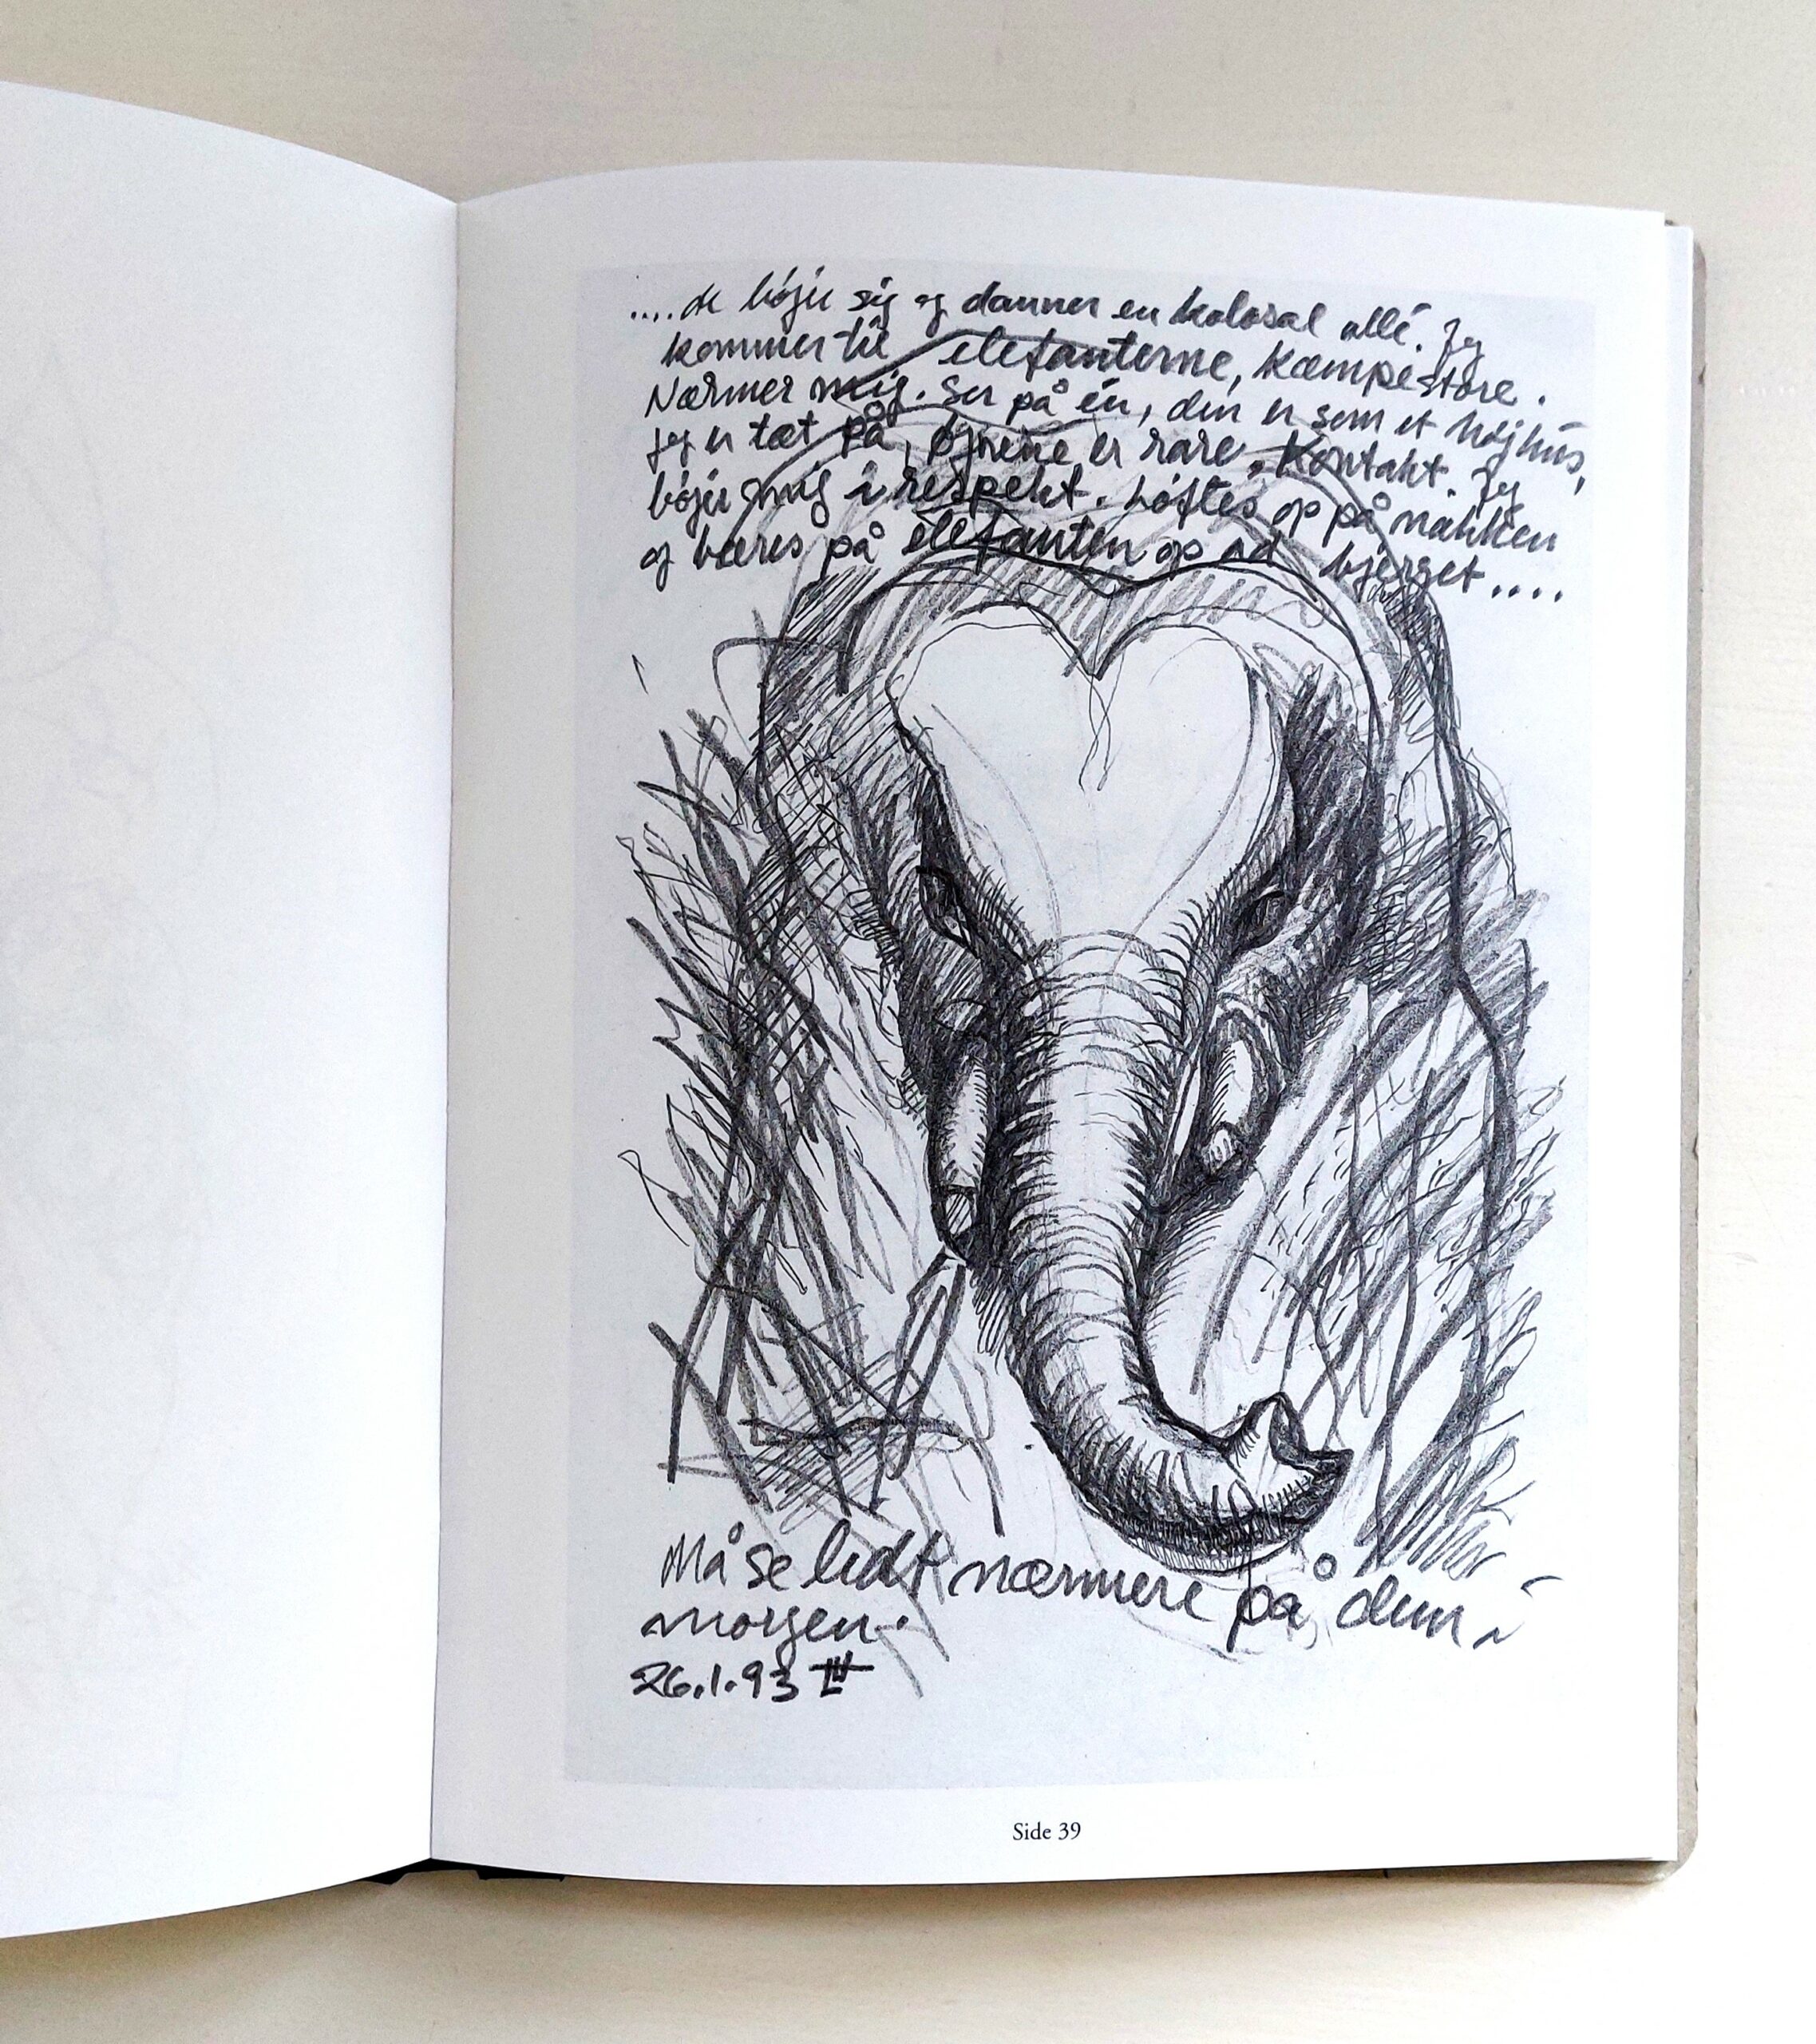 ....de bøjer sig og danner en kolosal allé. Jeg
kommer til elefanterne, kæmpestore.
Nærmer mig. Ser på én, den er som et højhus,
jeg er tæt på, øjnene er rare. Kontakt. Jeg
bøjer mig i respekt. Løftes op på nakken
og bæres på elefanten op ad bjerget....
Må se lidt nærmere på dem i
morgen.
26.1.93
Side 39